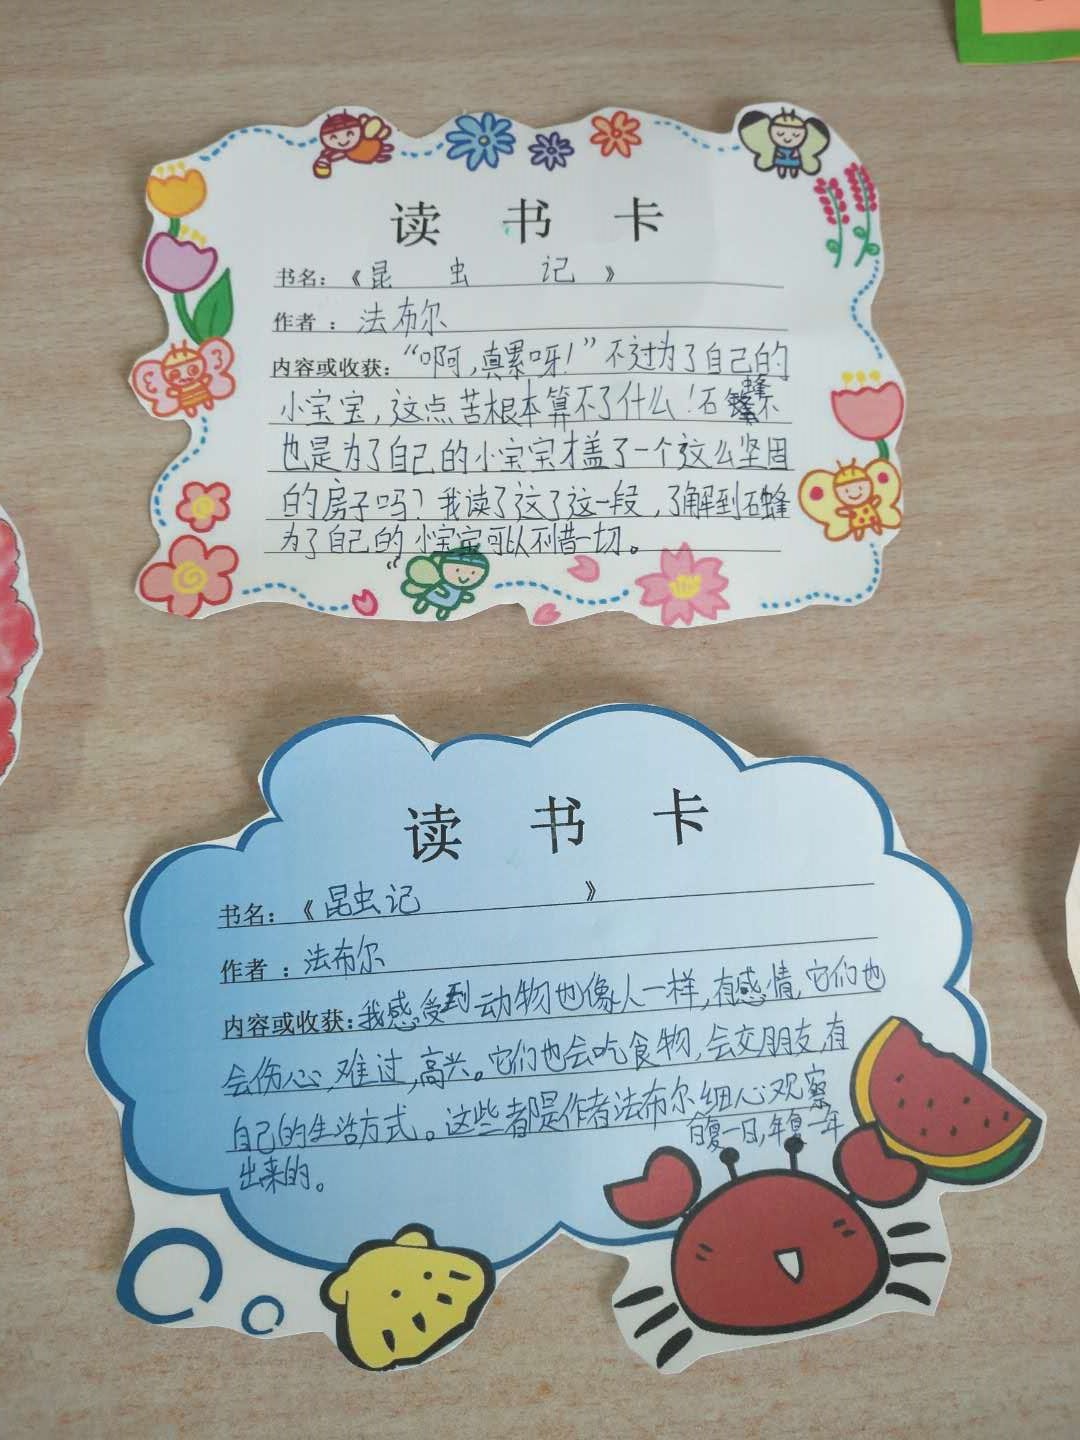 读 书 卡
书名：《昆 虫 记 》
作者 ：法布尔
内容或收获："啊,真累呀!"不过为了自己的
小宝宝,这点苦根本算不了什么!石蜂不
也是为了自己的小宝宝才盖了一个这么坚固
的房子吗?我读了这了这一段,了解到石蜂
为了自己的小宝宝可以不惜一切。
读 书 卡
书名：《昆虫记 》
作者 ：法布尔
内容或收获:我感受到动物也像人一样,有感情,它们也
会伤心,难过,高兴。它们也会吃食物,会交朋友,有
自己的生活方式。这些都是作者法布尔细心观察
日复一日,年复一年
出来的。